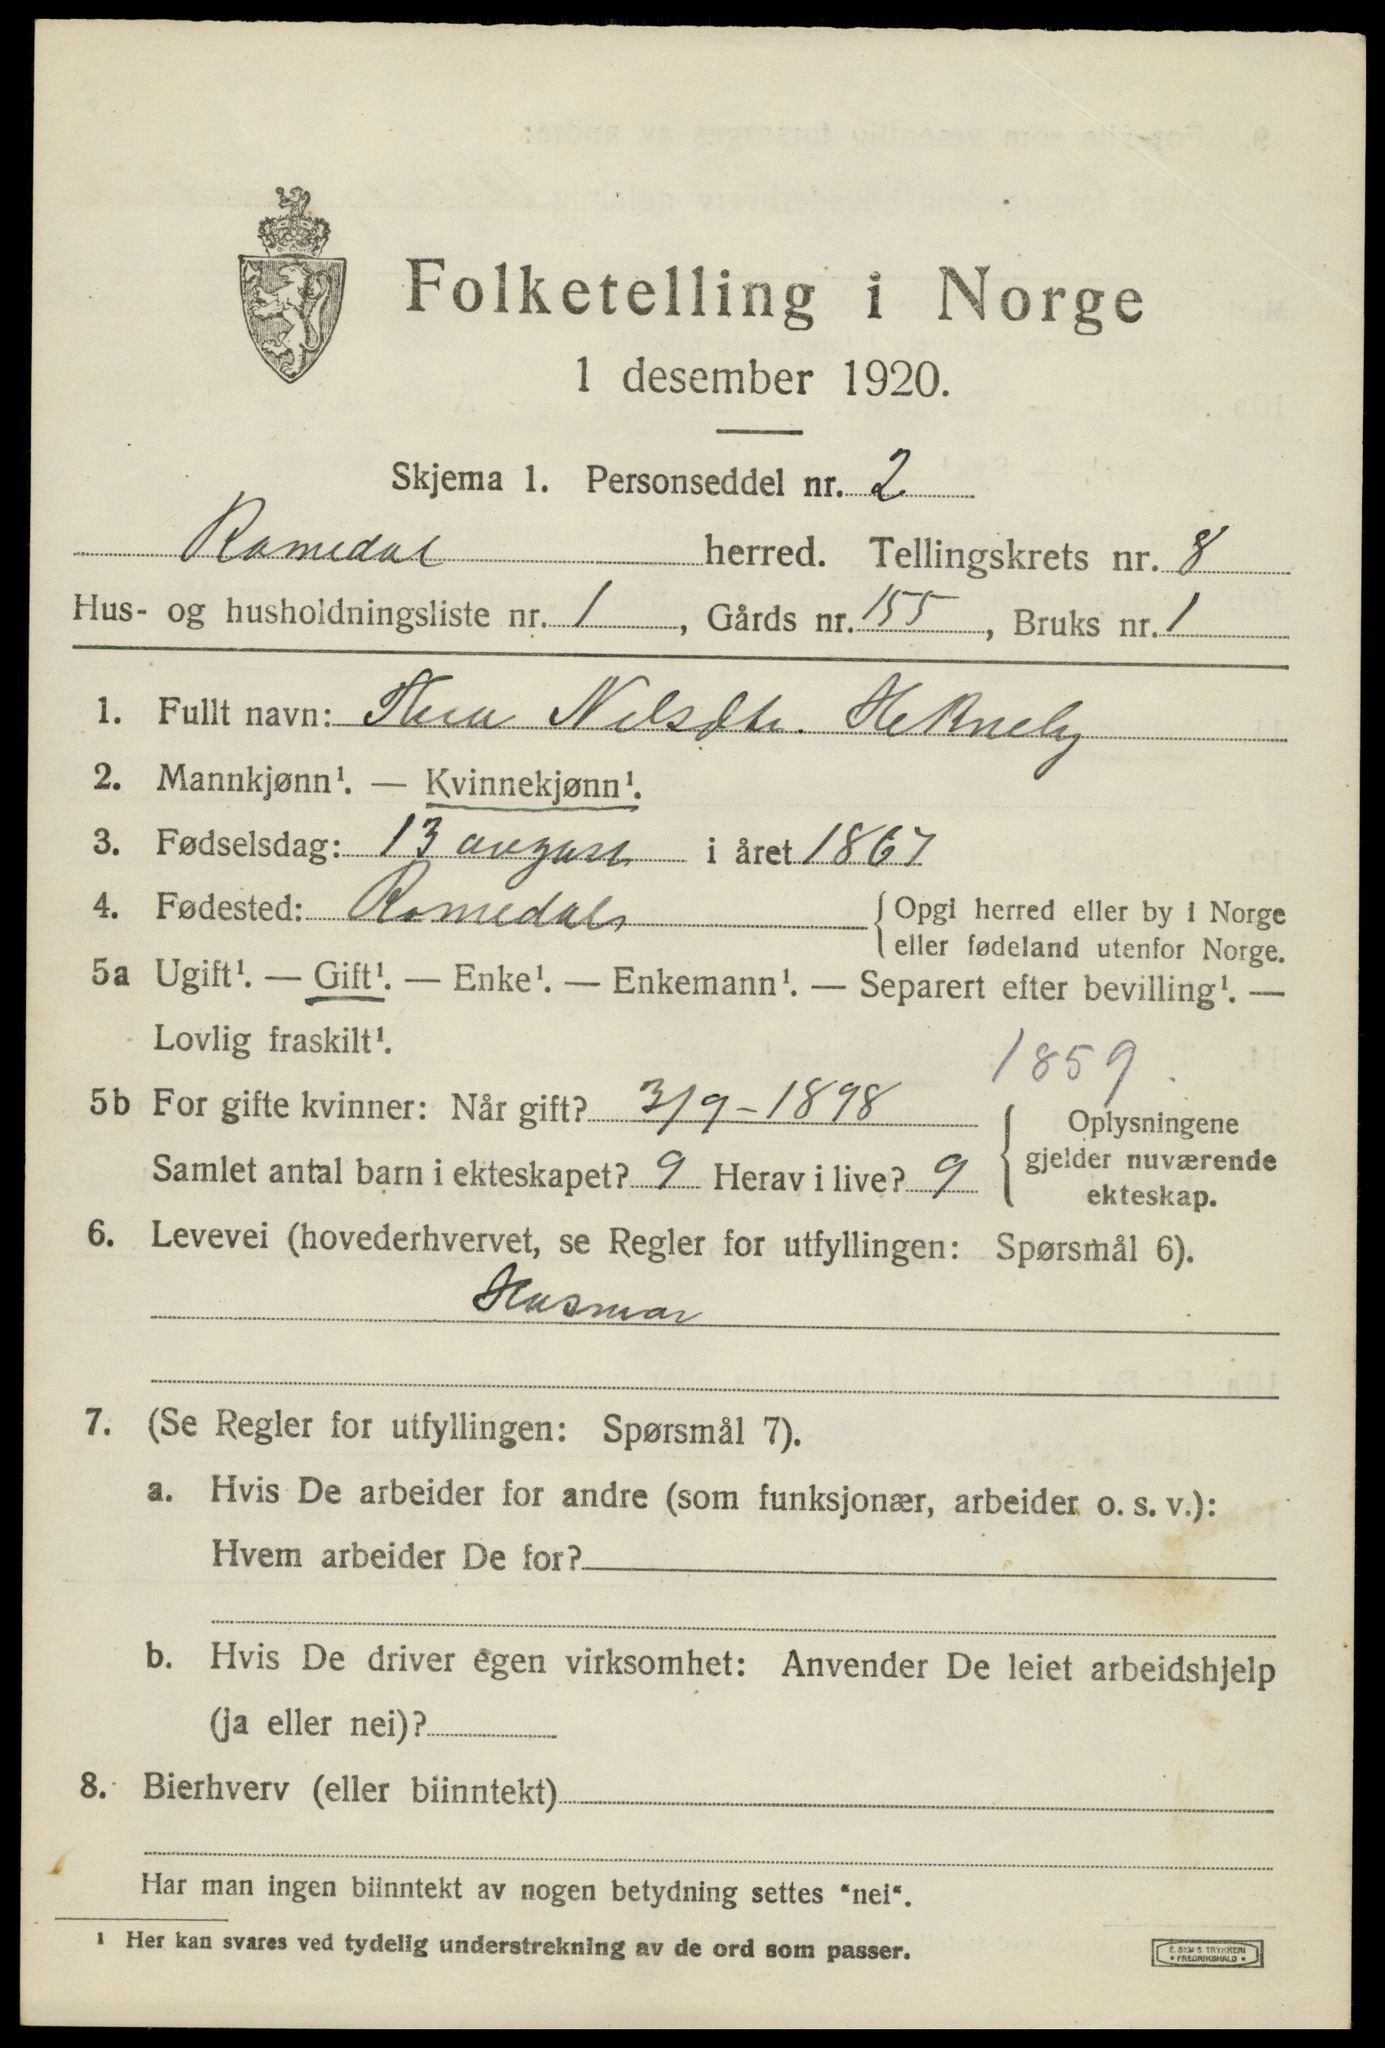 Folketelling i Norge
1 desember 1920.
Skjema 1. Personseddel nr. 2
Romedal herred. Tellingskrets nr. 8
Hus- og husholdningsliste nr. 1, Gårds nr. 155, Bruks nr. 1
1. Fullt navn: Thea Nilsdtr.
2. Mannkjønn¹. — Kvinnekjønn¹.
3. Fødselsdag: 13 august i året 1867
4. Fødested: Romedal {Opgi herred eller by i Norge
eller fødeland utenfor Norge.
5a Ugift¹. — Gift¹. — Enke¹. — Enkemann¹. — Separert efter bevilling¹. —
Lovlig fraskilt¹.
1859.
5b For gifte kvinner: Når gift? 3/9-1898 Oplysningene
Samlet antal barn i ekteskapet? 9 Herav i live? 9 gjelder nuværende
ekteskap.
6. Levevei (hovederhvervet, se Regler for utfyllingen: Spørsmål 6).
Husmor
7. (Se Regler for utfyllingen: Spørsmål 7).
a. Hvis De arbeider for andre (som funksjonær, arbeider o. s. v.):
Hvem arbeider De for?
b. Hvis De driver egen virksomhet: Anvender De leiet arbeidshjelp
(ja eller nei)?
8. Bierhverv (eller biinntekt)
Har man ingen biinntekt av nogen betydning settes "nei".
¹ Her kan svares ved tydelig understrekning av de ord som passer.
E. SEM'S TRYKKERI
• FREDRIKSHALD •